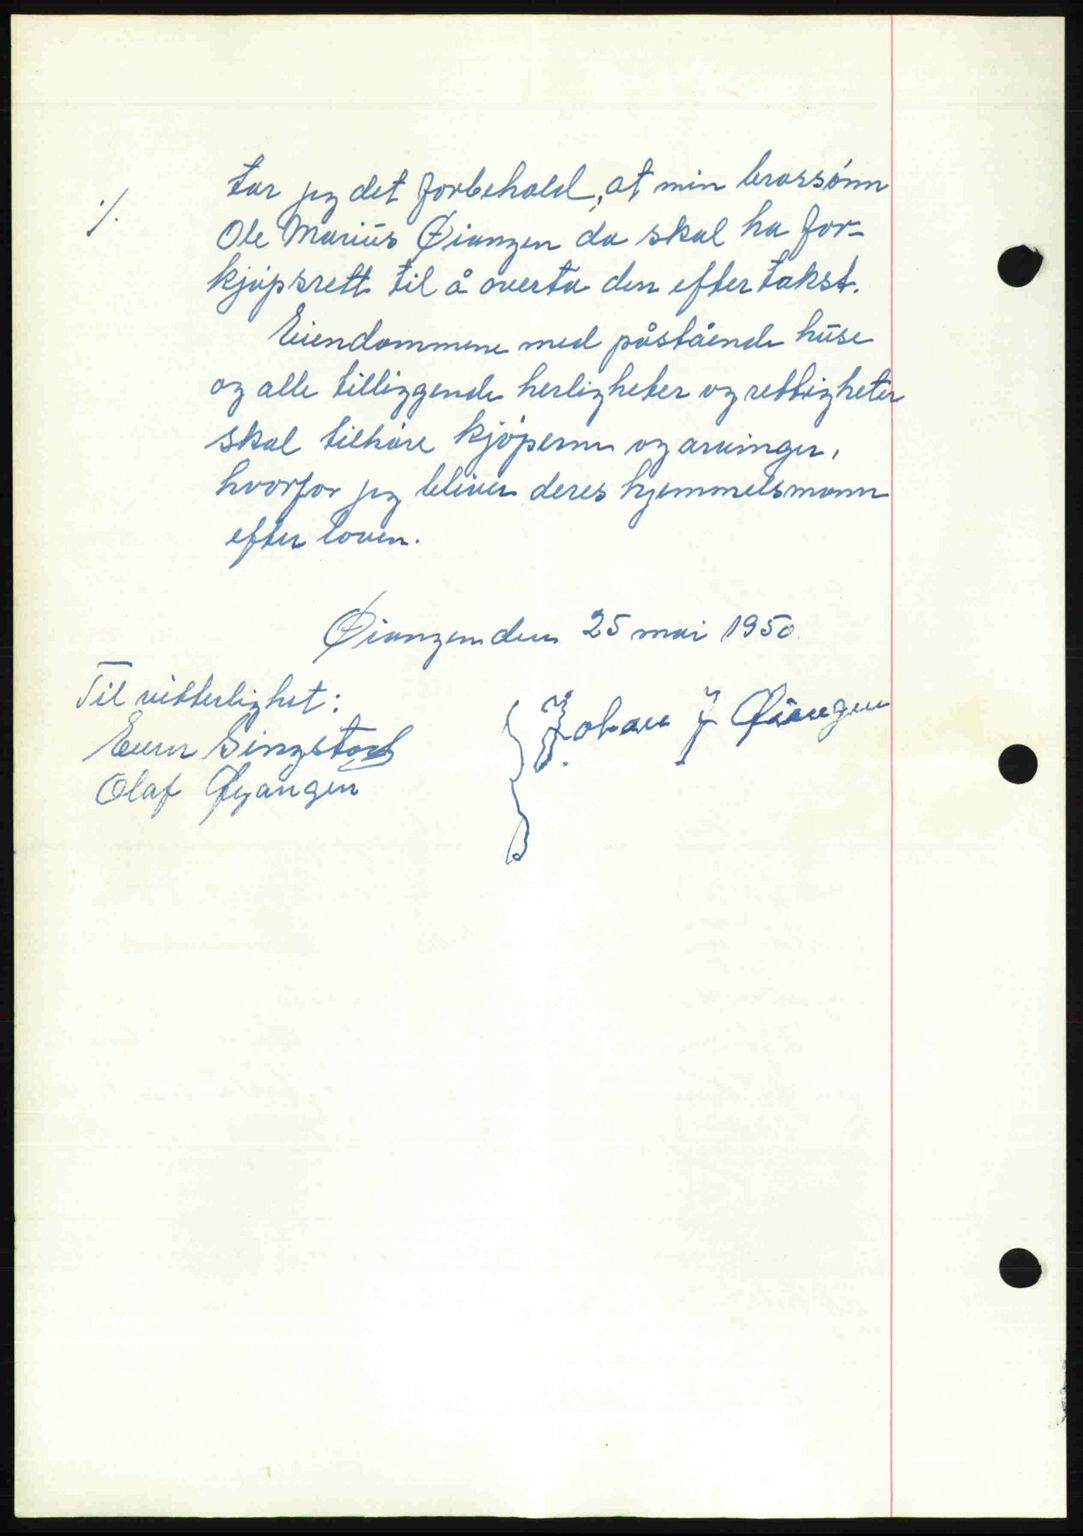 ./.
tar jeg det forbehold, at min brorsønn
Ole Marius Øiangen da skal ha for-
kjøpsrett til å overta den efter takst.
Eiendommene med påstående huse
og alle tilliggende herligheter og rettigheter
skal tilhøre kjøperne og arvinger,
hvorfor jeg bliver deres hjemmelsmann
efter loven.
Øiangen den 25 mai 1950
Til vitterlighet:
Johan J Øiangen
Singstad
Olaf Øyangen